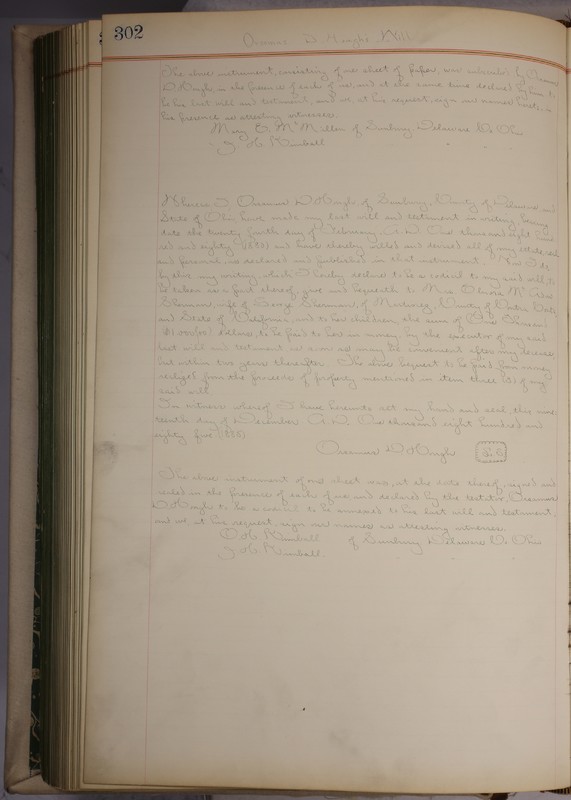 302
D. Hough's Will
The above instrument, consisting of one sheet of paper, was subscribed by Oramus
D. Hough in the presence of each of us, and at the same time declared by him to
be his last will and testament, and we, at his request, sign our names hereto, in
his presence as attesting witnesses.
Mary E. McMillen of Sunbury, Delaware Co. Ohio
Kimball
Whereas I, D. Hough, of Sunbury, County of Delaware, and
State of Ohio have made my last will and testament in writing bearing
date the twenty fourth day of February, A.D. One thousand eight hund
red and eighty and have thereby willed and devised all of my estate, real
and personal, as declared and published in that instrument. Now I do
by this my writing, which I hereby declare to be a codicil to my said will, to
be taken as a part thereof, give and bequeath to Mrs.
Sherman, wife of George Sherman, of County of
and State of California, and to her children, the sum of One Thousand
dollars, to be paid to her in money by the executor of my said
last will and testament as soon as may be convenient after my decease
but within two years thereafter. The above bequest to be paid from money
realized from the proceeds of property mentioned in item three (3) of my
said will.
In witness whereof I have hereunto set my hand and seal, this nine
teenth day of December A.D. One thousand eight hundred and
eighty five (1885)
D. Hough
The above instrument of one sheet was, at the date thereof, signed and
sealed in the presence of each of us, and declared by the testator,
D. Hough to be a codicil to be annexed to his last will and testament,
and we, at his request, sign our names as attesting witnesses.
Kimball of Sunbury Delaware Co. Ohio
Kimball